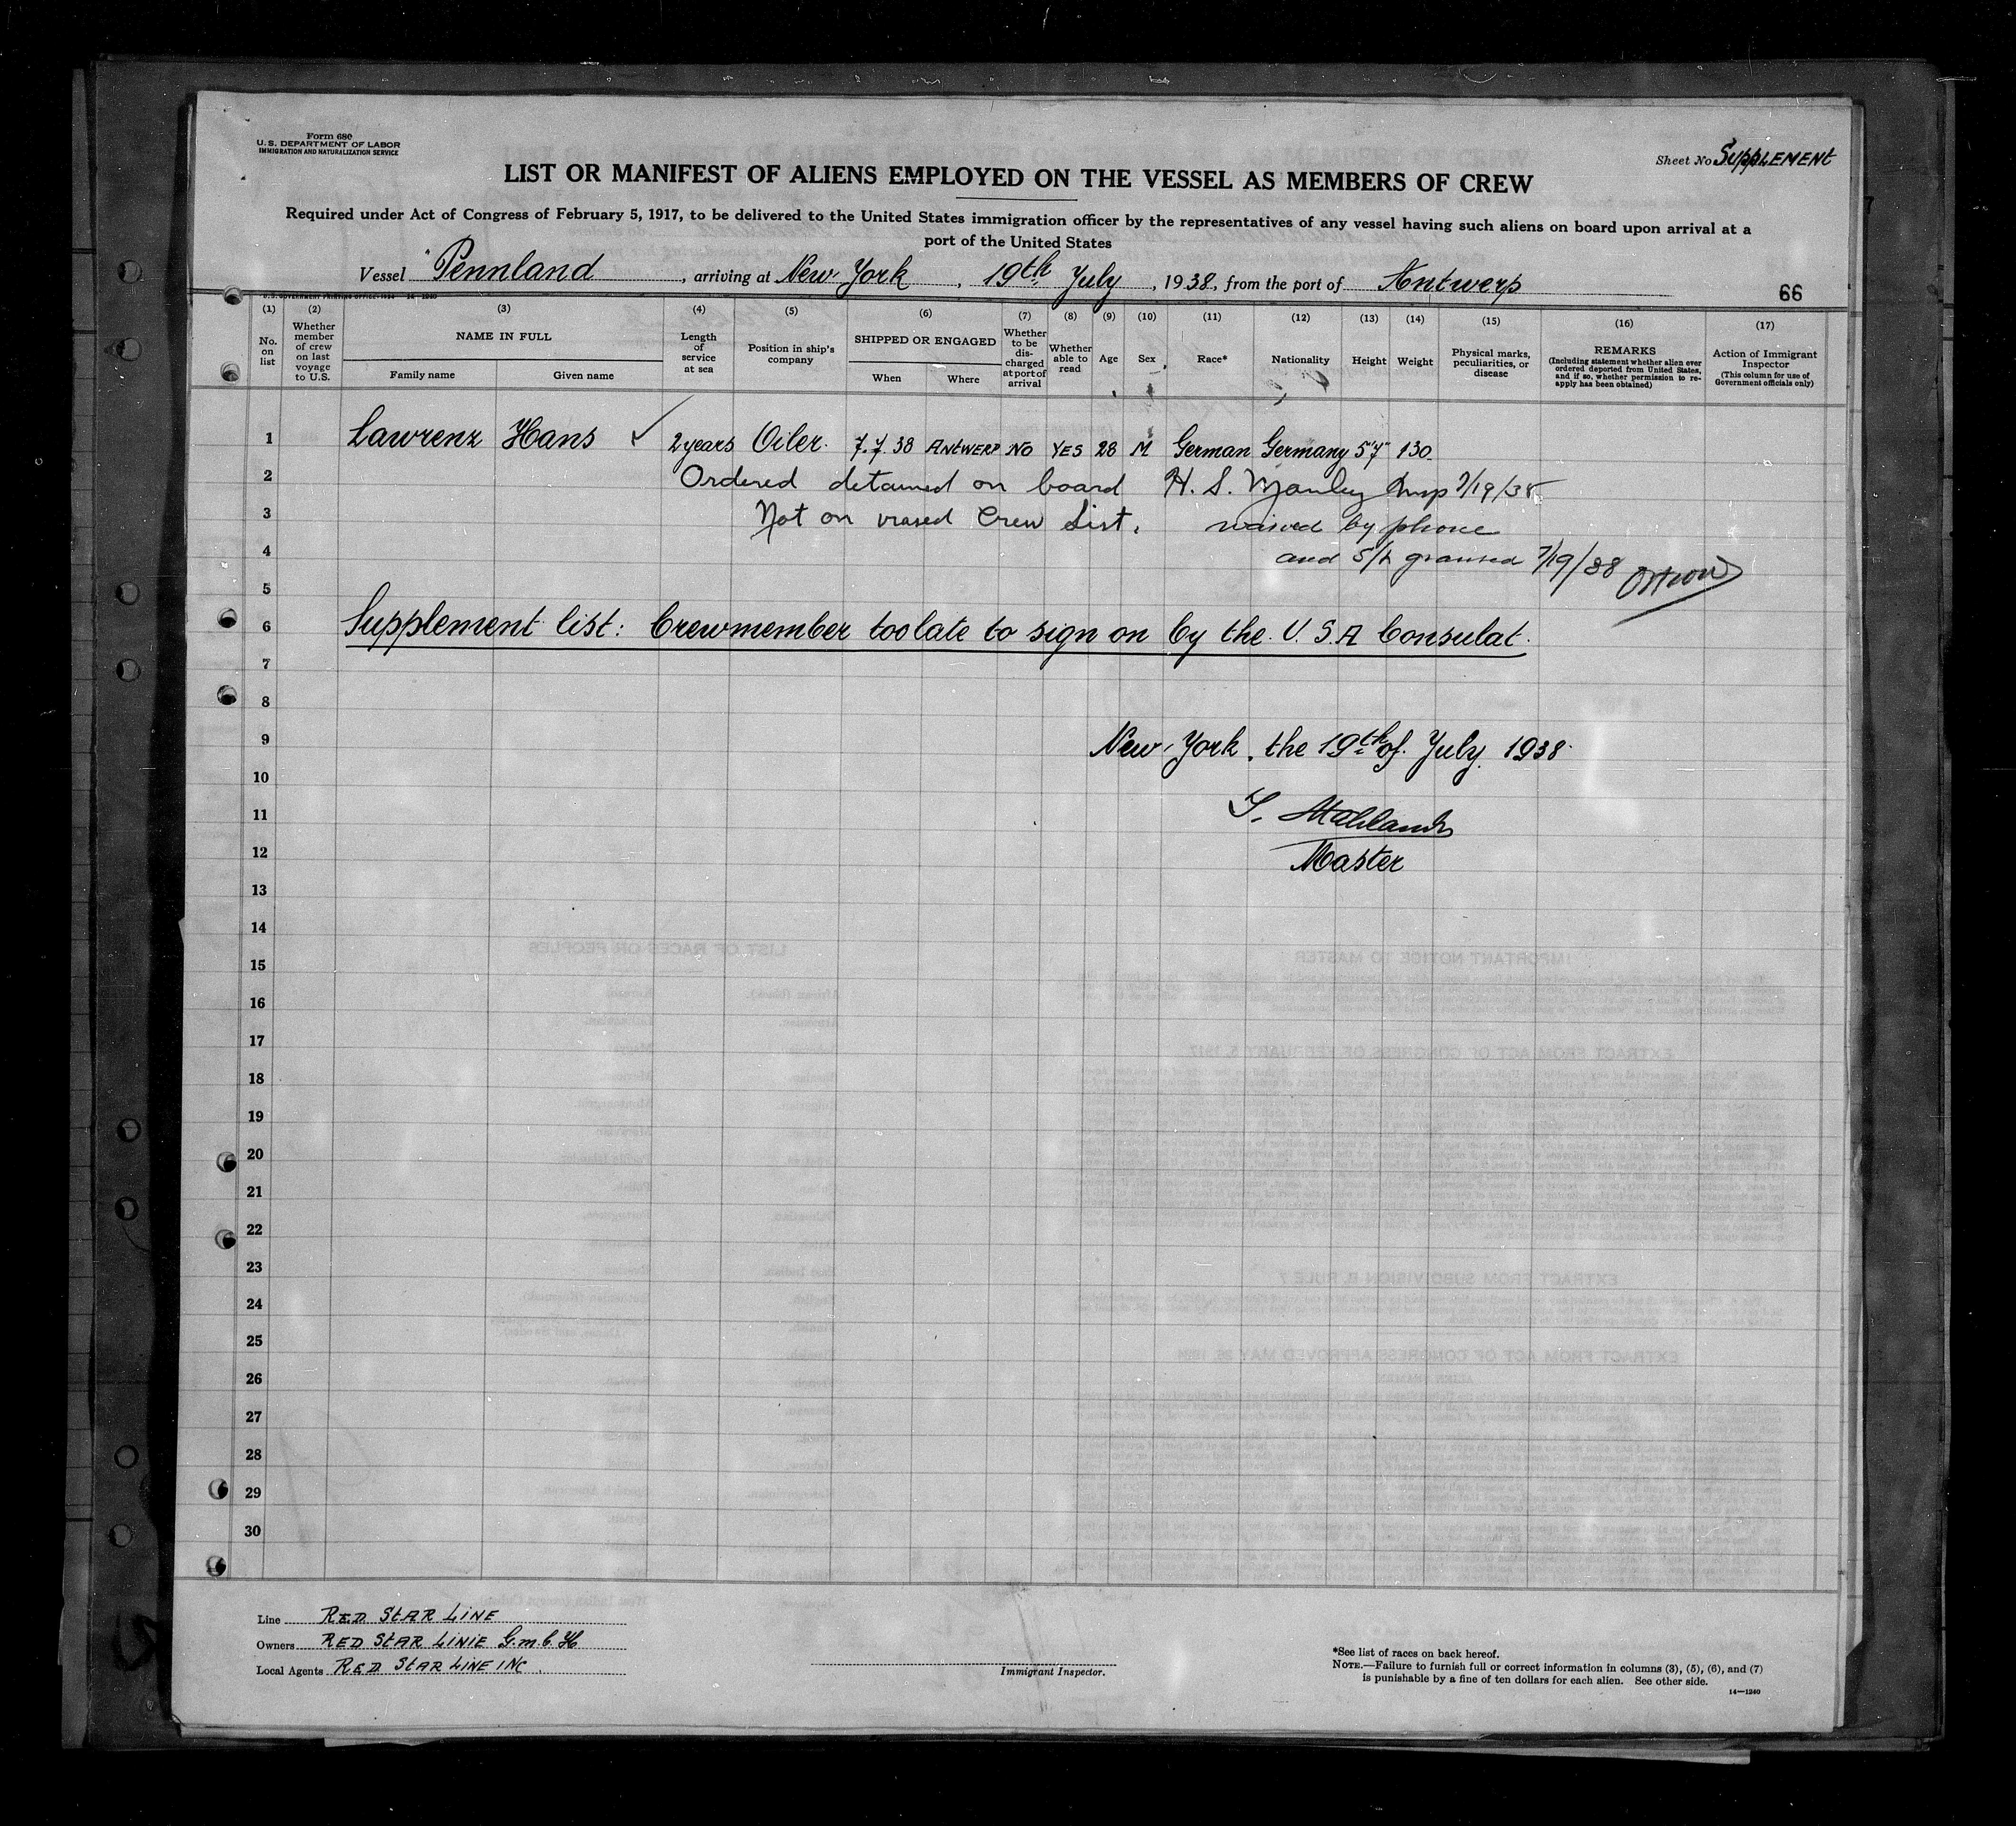 Form 680
U.S. DEPARTMENT OF LABOR
IMMIGRATION AND NATURALIZATION SERVICE
Sheet No. SuppLEMENT
LIST OR MANIFEST OF ALIENS EMPLOYED ON THE VESSEL AS MEMBERS OF CREW
Required under Act of Congress of February 5, 1917, to be delivered to the United States immigration officer by the representatives of any vessel having such aliens on board upon arrival at a
port of the United States
Vessel "Pennland , arriving at New York , 19th July , 1938, from the port of Antwerp
66
(1) No. on list
(2) Whether member of crew on last voyage to U.S.
(3) NAME IN FULL Family name Given name
(4) Length of service at sea
(5) Position in ship's company
(6) SHIPPED OR ENGAGED When Where
(7) Whether to be discharged at port of arrival
(8) Whether able to read
(9) Age
(10) Sex
(11) Race*
(12) Nationality
(13) Height
(14) Weight
(15) Physical marks, peculiarities, or disease
(16) REMARKS (Including statement whether alien ever ordered deported from United States, and if so, whether permission to re-apply has been obtained)
(17) Action of Immigrant Inspector (This column for use of Government officials only)
1 Lawrenz Hans ✓ 2 years Oiler. 7.7.38 ANTWERP NO YES 28 M German Germany 5'7" 130
2 Ordered detained on board H. S. Manley Insp 7/19/38
3 Not on visaed Crew List. waived by phone
4 and S/L granted 7/19/38
5
6 Supplement list: Crewmember too late to sign on by the U.S.A Consulat.
7
8
9 New-York, the 19th of July 1938.
10
11
12 Master
13
14
15
16
17
18
19
20
21
22
23
24
25
26
27
28
29
30
Line RED StAR LiNE
Owners RED StAR LiNiE G.m.b.H
Local Agents RED StAR LiNE INC.
Immigrant Inspector.
*See list of races on back hereof.
NOTE.—Failure to furnish full or correct information in columns (3), (5), (6), and (7)
is punishable by a fine of ten dollars for each alien. See other side.
14—1240